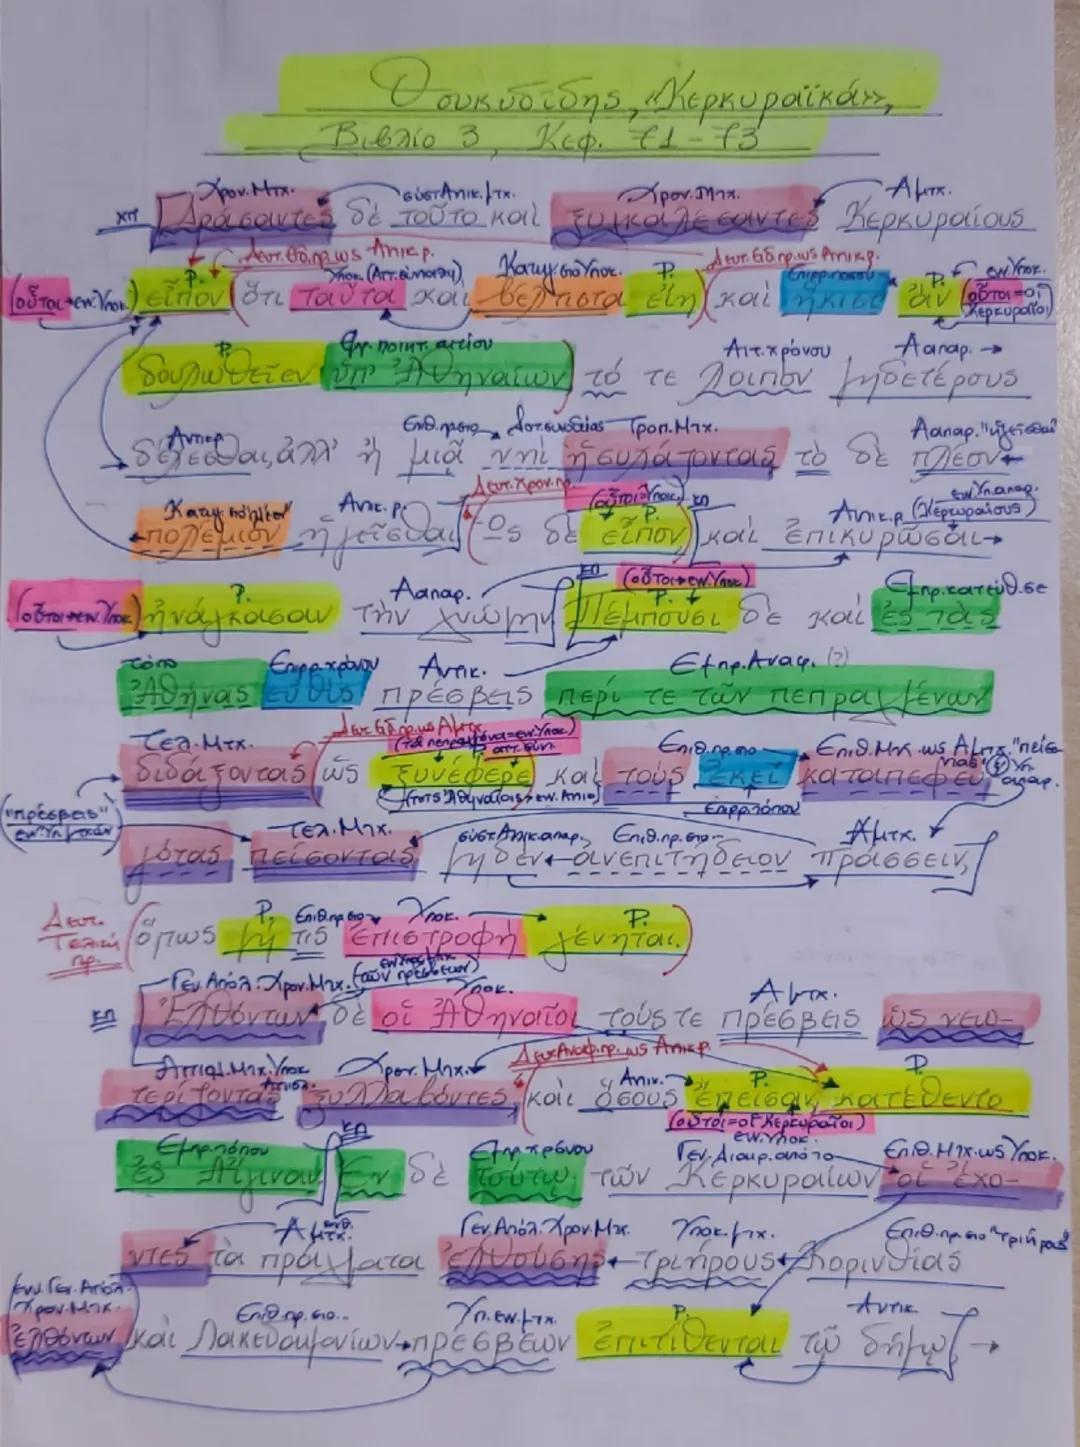 Θουκυδίδης, «Κερκυραϊκά»,
Βιβλίο 3, Κεφ. 71-73
Χρον.Μτχ. σύστ.Αντικ.μτχ. Χρον.Μτχ. Αμτχ.
ΚΠ Δράσαντες δὲ τοῦτο καὶ ξυγκαλέσαντες Κερκυραίους
Δευτ. Ειδ.πρ.ως Αντικ.ρ. Δευτ. Ειδ.πρ.ως Αντικ.ρ.
Ρ. Υποκ. (Αττ.σύνταξη) Κατηγ. στο Υποκ. Ρ. Επιρρ.ποσού Ρ. εν.Υποκ.
(οὗτοι→εν.Υποκ.) εἶπον (ὅτι ταῦτα καὶ βέλτιστα εἴη (καὶ ἥκιστ' ἂν (οὗτοι=οἱ Κερκυραῖοι)
Ρ. Εμπ. ποιητ. αιτίου Αιτ.χρόνου Ααπαρ. →
δουλωθεῖεν ὑπ' Ἀθηναίων) τό τε λοιπὸν μηδετέρους
Αντικρ. Επιθ.πρ.στο Δοτ.συνοδείας Τροπ.Μτχ. Ααπαρ. "ἡγεῖσθαι"
δέχεσθαι, ἀλλ' ἢ μιᾷ νηὶ ἡσυχάζοντας τὸ δὲ πλέον
Δευτ.Χρον.πρ.
Κατηγ. στο "πλέον" Αντικ.ρ. (οὗτοι=Υποκ.) Ρ. ΚΠ Αντικ.ρ. (Κερκυραίους) εν.Υπ.απαρ.
πολέμιον ἡγεῖσθαι (Ὡς δὲ εἶπον) καὶ ἐπικυρῶσαι→
Ρ. Ααπαρ. ΚΠ (οὗτοι→εν.Υποκ.) Ρ. Εμπρ.κατεύθ.σε
(οὗτοι→εν.Υποκ.) ἠνάγκασαν τὴν γνώμην Πέμπουσι δὲ καὶ ἐς τὰς
τόπο Επιρρ.χρόνου Αντικ. Εμπρ.Αναφ. (?)
Ἀθήνας εὐθὺς πρέσβεις περί τε τῶν πεπραγμένων
Δευτ. Ειδ.πρ.ως Αμτχ.
Τελ.Μτχ. (τὰ πεπραγμένα=εν.Υποκ.) αττ.σύντ. Επιθ.πρ.στο Επιθ.Μτχ.ως Αμτχ. "πείσοντας" & Υπ απαρ.
διδάξοντας (ὡς ξυνέφερε) καὶ τοὺς ἐκεῖ καταπεφευ-
(τοῖς Ἀθηναίοις→εν.Αντικ) Επιρρ.τόπου
("πρέσβεις" εν.Υπ.μτχών) Τελ.Μτχ. σύστ.Αντικ.απαρ. Επιθ.πρ.στο Αμτχ.
γότας πείσοντας μηδὲν ἀνεπιτήδειον πράσσειν,
Δευτ. Τελική πρ. Ρ. Επιθ.πρ.στο Υποκ. Ρ.
(ὅπως μή τις ἐπιστροφὴ γένηται.)
Γεν.Απόλ.Χρον.Μτχ. (τῶν πρέσβεων) Υποκ. Αμτχ.
ΚΠ Ἐλθόντων δὲ οἱ Ἀθηναῖοι τούς τε πρέσβεις ὡς νεω-
Αιτιολ.Μτχ.Υποκ. Χρον.Μτχ. Δευτ.Αναφ.πρ.ως Αντικρ. Αντικ. Ρ. Ρ.
τερίζοντας ξυλλαβόντες, (καὶ ὅσους ἔπεισαν, κατέθεντο
(οὗτοι=οἱ Κερκυραῖοι) εν.Υποκ.
Εμπρ.τόπου ΚΠ Εμπρ.χρόνου Γεν.Διαιρ.από το Επιθ.Μτχ.ως Υποκ.
ἐς Αἴγιναν Ἐν δὲ τούτῳ τῶν Κερκυραίων οἱ ἔχο-
Αμτχ. Γεν.Απόλ.Χρον.Μτχ. Υποκ.μτχ. Επιθ.πρ.στο "τριήρους"
ντες τὰ πράγματα ἐλθούσης τριήρους Κορινθίας
Ενν.Γεν.Απόλ. Χρον.Μτχ. Επιθ.πρ.στο Υπ.εν.μτχ. Ρ. Αντικ.
ἐλθόντων καὶ Λακεδαιμονίων πρέσβεων ἐπιτίθενται τῷ δήμῳ, →